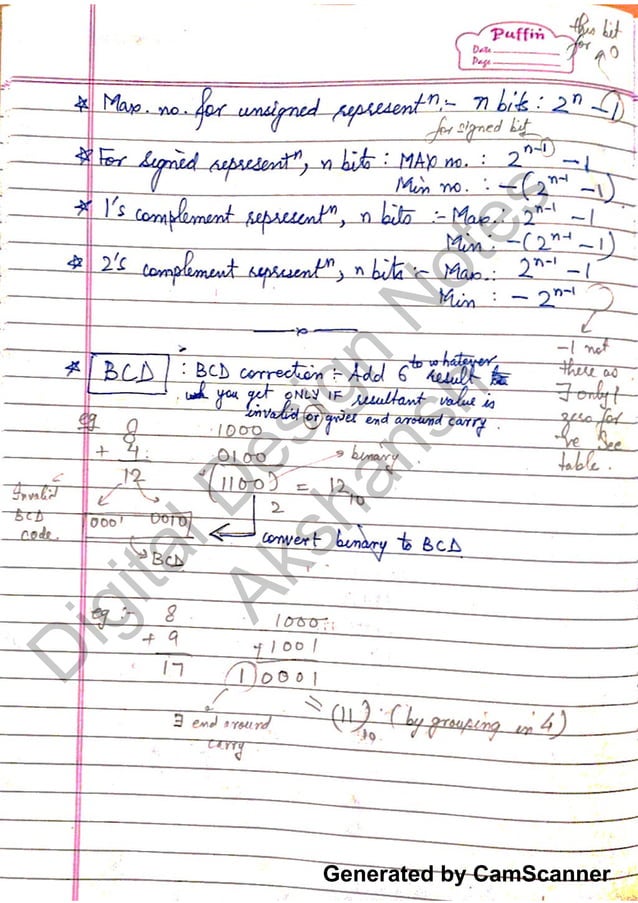 Puffin
Date
Page
this bit
for
☆ Max. no. for unsigned represent^n :- n bits : 2^n - 1
for signed bit
☆ For signed represent^n, n bits : MAX no. : 2^(n-1) - 1
Min no. : -(2^(n-1) - 1)
☆ 1's complement represent^n, n bits :- Max. : 2^(n-1) - 1
Min : -(2^(n-1) - 1)
☆ 2's complement represent^n, n bits :- Max. : 2^(n-1) - 1
Min : - 2^(n-1)
-1 not
there as
∃ only 1
zero for
-ve See
table.
☆ BCD : BCD correction :- Add 6 to whatever result
you get ONLY IF resultant value is
invalid or gives end around carry.
eg 8 1000
+ 4 0100
12 (1100)2 = 12 10
binary
Invalid
BCD
code.
0001 0010
convert binary to BCD
BCD
eg :- 8 1000
+ 9 + 1001
17 1 0001
= (11)10 (by grouping in 4)
∃ end around
carry
Digital Design Notes
Akshansh
Generated by CamScanner